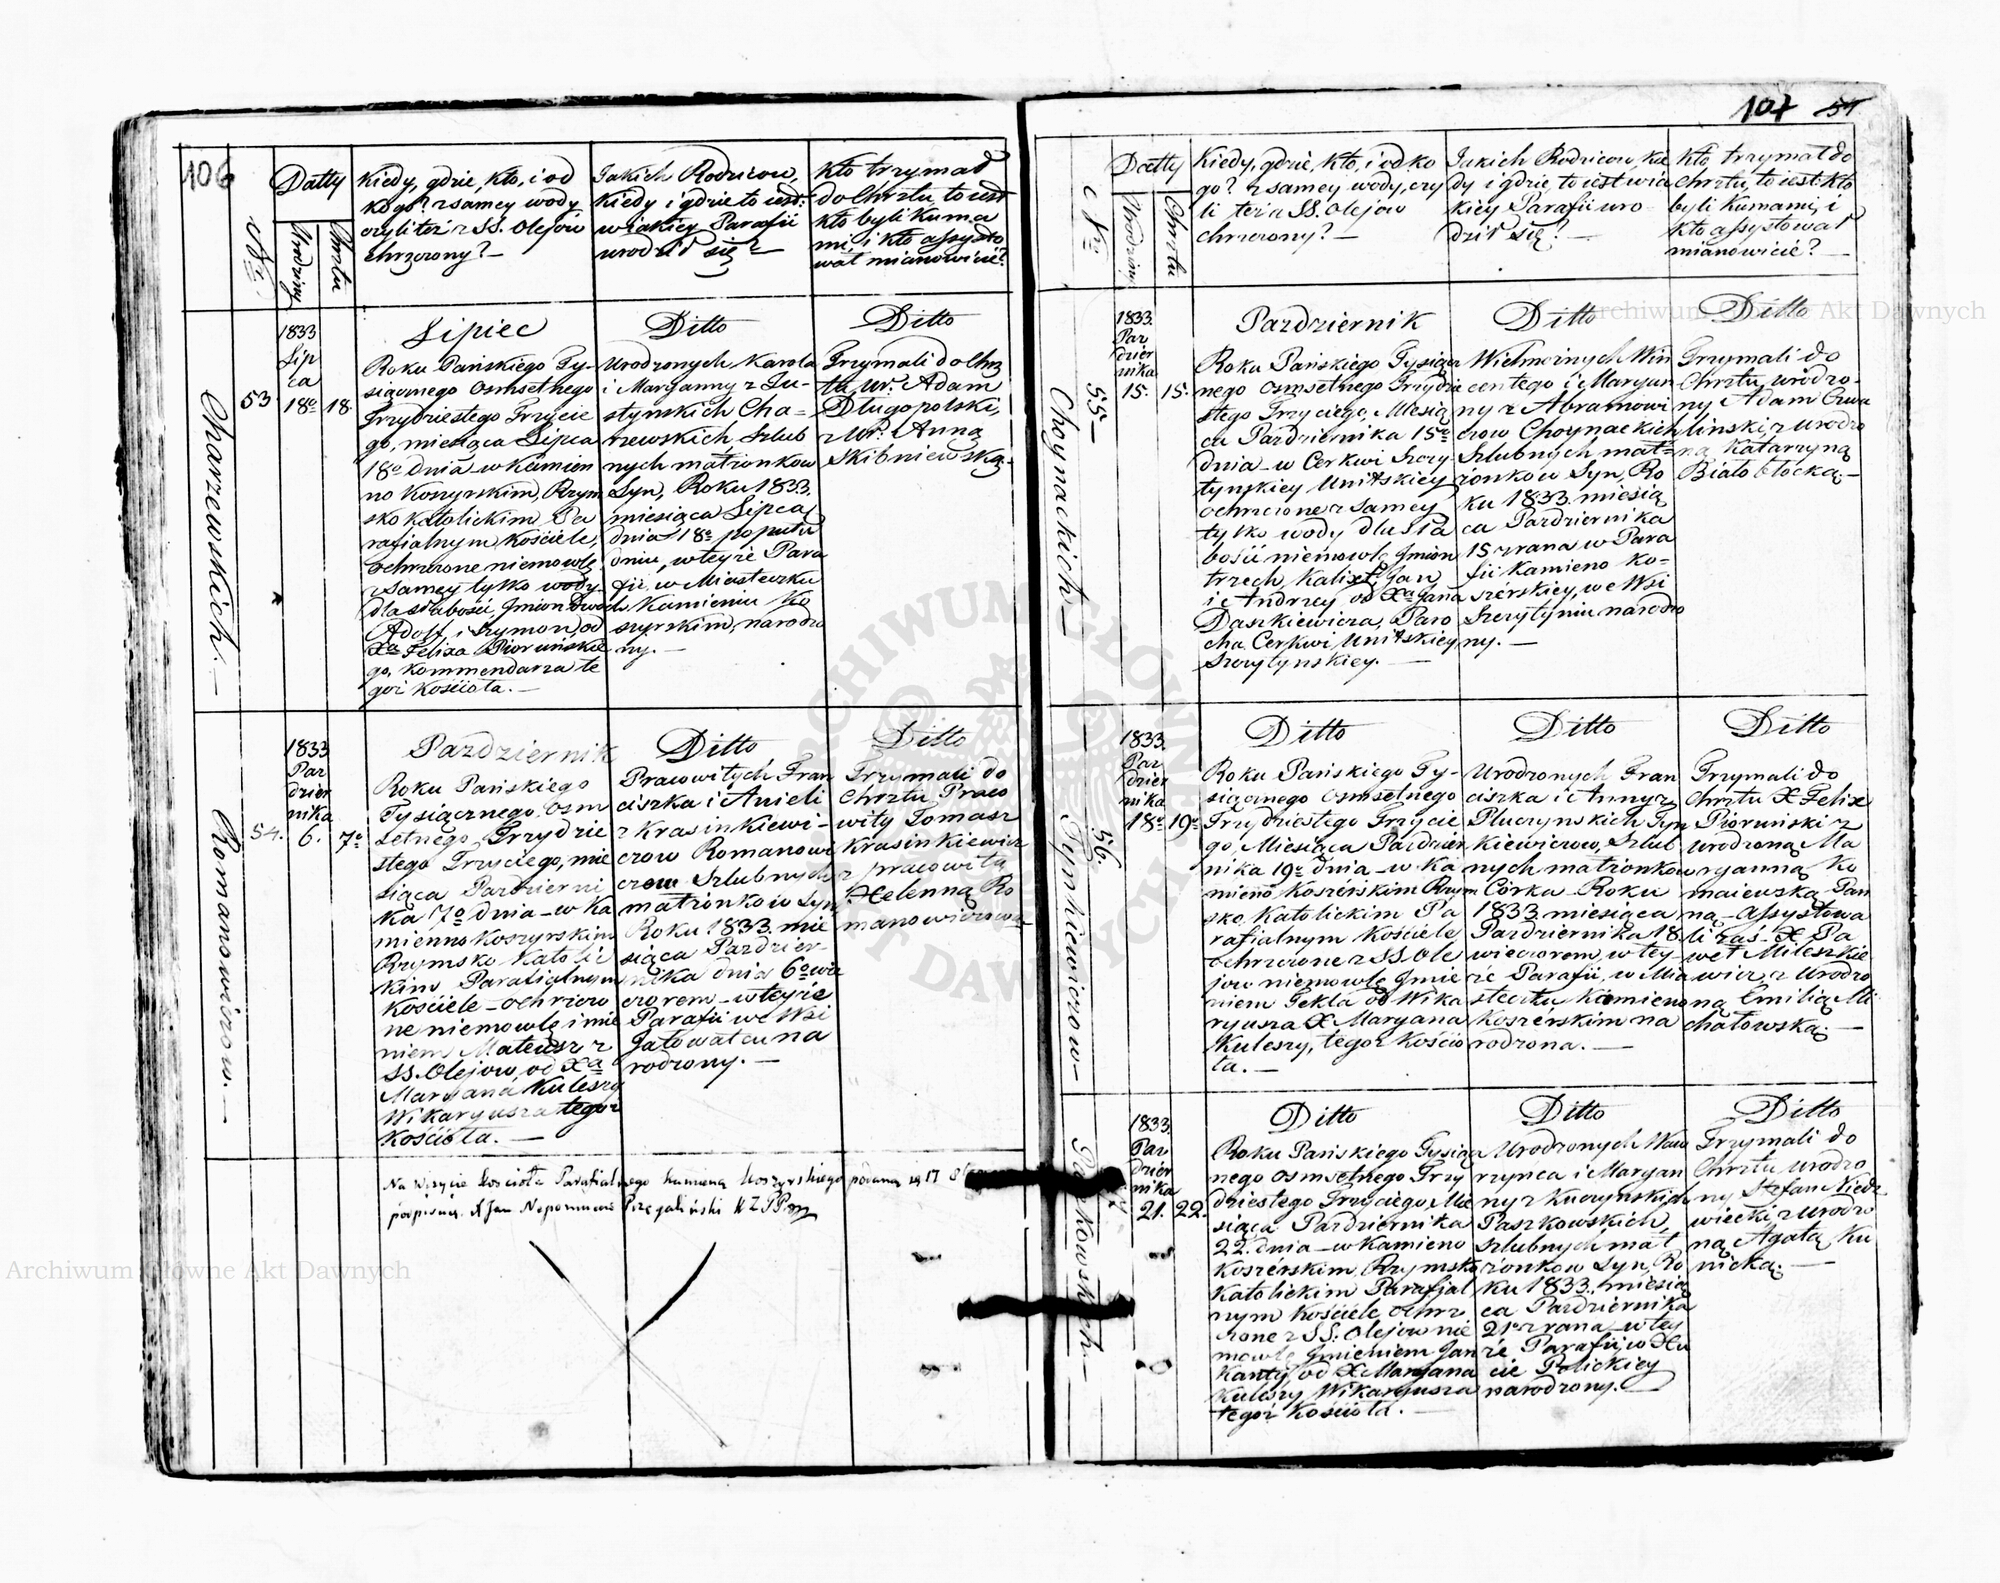 106
Nr.
Datty
Urodziny
Chrztu
Kiedy, gdzie, kto, i od
kogo? z samey wody
czyli też z SS. Olejow
chrzczony? —
Jakich Rodzicow,
kiedy i gdzie to iest:
w iakiey Parafii
urodził się?
Kto trzymał
do Chrztu, to iest
kto byli Kuma
mi, i kto assysto
wał mianowicie?
Charzewskich. —
53
1833
Lip
ca
18o
18.
Lipiec
Roku Pańskiego Ty-
siącznego Osmsetnego
Trzydziestego Trzecie
go, miesiąca Lipca
18o dnia w Kamien
no Koszyrskim, Rzym
sko katolickim Pa
rafialnym Kościele,
ochrzczone niemowlę
z samey tylko wody
dla słabości Jmion dwoch
Adolf i Szymon, od
Xa Felixa Piorunskie
go, Kommendarza te
goż Kościoła. —
Ditto
Urodzonych Karola
i Maryanny z Ju-
styńskich Cha-
rzewskich, szlub
nych matżonkow
Syn, Roku 1833.
miesiąca Lipca
dnia 18o po połu
dniu, w teyże Para
fii w Miasteczku
Kamieniu Ko
szyrskim, narodzo
ny. —
Ditto
Trzymali do Chrz
tu, Ur: Adam
Długopolski,
z Ur: Anną
Skibniewską. —
Romanowiczow. —
54.
1833
Paz
dzier
nika
6.
7o
Pazdziernik
Roku Pańskiego
Tysiącznego, Osm
setnego, Trzydzie
stego Trzeciego, mie
siąca Pazdzierni
ka 7o dnia w Ka
mienno Koszyrskim
Rzymsko Katolic
kim Parafialnym
Kościele ochrzczo
ne niemowlę imie
niem Mateusz z
SS. Olejow, od Xa
Maryana Kuleszy
Wikaryusza tegoż
Kościoła. —
Ditto
Pracowitych Fran
ciszka i Anieli
z Krasinkiewi-
czow Romanowi
czow Szlubnych
matżonkow Syn
Roku 1833. mie
siąca Pazdzier-
nika dnia 6o wie
czorem w teyże
Parafii we Wsi
rodzony. —
Ditto
Trzymali do
Chrztu Praco
wity Tomasz
Krasinkiewicz
z pracowitą
Helenną Ro
manowiczową
Na wizycie kościoła Parafialnego Kamienia Koszyrskiego
podpisuię X Jan Nepomucen
107 54
Nr.
Datty
Urodziny
Chrztu
Kiedy, gdzie, kto, i od ko
go? z samey wody, czy
li też z SS. Olejow
chrzczony? —
Jakich Rodzicow, kie
dy i gdzie, to iest w ia
kiey Parafii uro-
dził się? —
Kto trzymał do
Chrztu, to iest kto
byli Kumami, i
kto assystował
mianowicie? —
55 —
Choynackich —
1833.
Paz
dzier
nika
15.
15.
Pazdziernik
Roku Pańskiego Tysiącz
nego Osmsetnego Trzydzie
stego Trzeciego, Miesią
ca Pazdziernika 15o
dnia w Cerkwi Szczy
tyńskiey Unitskiey
ochrzczone z samey
tylko wody dla sła
bości niemowlę Jmion
trzech, Kalixt, Jan
i Andrzey, od Xa Jana
Daszkiewicza, Paro
cha Cerkwi Unitskiey
Szczytynskiey. —
Ditto
Wielmożnych Win
centego i Maryan
ny z Abramowi
czow Choynackich
Szlubnych mat-
żonkow Syn, Ro
ku 1833. miesią
ca Pazdziernika
15 z rana w Para
fii Kamieno Ko-
szerskiey, we Wsi
Szczytyniu narodzo
ny. —
Ditto
Trzymali do
Chrztu, urodzo-
ny Adam
z urodzo
ną Katarzyną
Białobłocką. —
56.
Tymkiewiczow —
1833.
Paz
dzier
nika
18o
19o
Ditto
Roku Pańskiego Ty-
siącznego Osmsetnego
Trzydziestego Trzecie
go, Miesiąca Pazdzier
nika 19o dnia w Ka
mieno Koszerskim Rzym
sko Katolickim Pa
rafialnym Kościele
ochrzczone z SS. Ole
jow niemowlę Jmie
niem Tekla od Wika
ryusza X Maryana
Kuleszy, tegoż Kościo
ła. —
Ditto
Urodzonych Fran
ciszka i Anny z
Pluczynskich Tym
kiewiczow, Szlub
nych matżonkow
Córka Roku
1833. miesiąca
Pazdziernika 18.
wieczorem, w tey-
że Parafii, w Mia
steczku Kamieno
Koszerskim na
rodzona. —
Ditto
Trzymali do
Chrztu X Felix
Pioruński z
urodzoną Ma
ryanną Ko
maiewską Pan
ną — assystowa
li zaś X Pa
weł Mileszkie
wicz, z urodzo
ną Emilią Mi
chałowską. —
Paszkowskich —
1833.
Paz
dzier
nika
21.
22.
Ditto
Roku Pańskiego Tysiącz
nego Osmsetnego Trzy
dziestego Trzeciego Mie
siąca Pazdziernika
22. dnia w Kamieno
Koszerskim, Rzymsko
Katolickim Parafial
nym Kościele ochrz
czone z SS. Olejow nie
mowlę Jmieniem Jan
Kanty, od X Maryana
Kuleszy Wikaryusza
tegoż Kościoła. —
Ditto
Urodzonych Waw
rzynca i Maryan
ny z Kuczynskich
Paszkowskich,
szlubnych mat
żonkow Syn, Ro
ku 1833. miesią
ca Pazdziernika
21o z rana w tey
że Parafii, w Hu
cie Polickiey
narodzony. —
Ditto
Trzymali do
Chrztu urodzo
ny Stefan Niedz
wiecki, z urodzo
ną Agatą Ku
nicką. —
Archiwum Główne Akt Dawnych
Archiwum Główne Akt Dawnych
ARCHIWUM GŁÓWNE AKT DAWNYCH